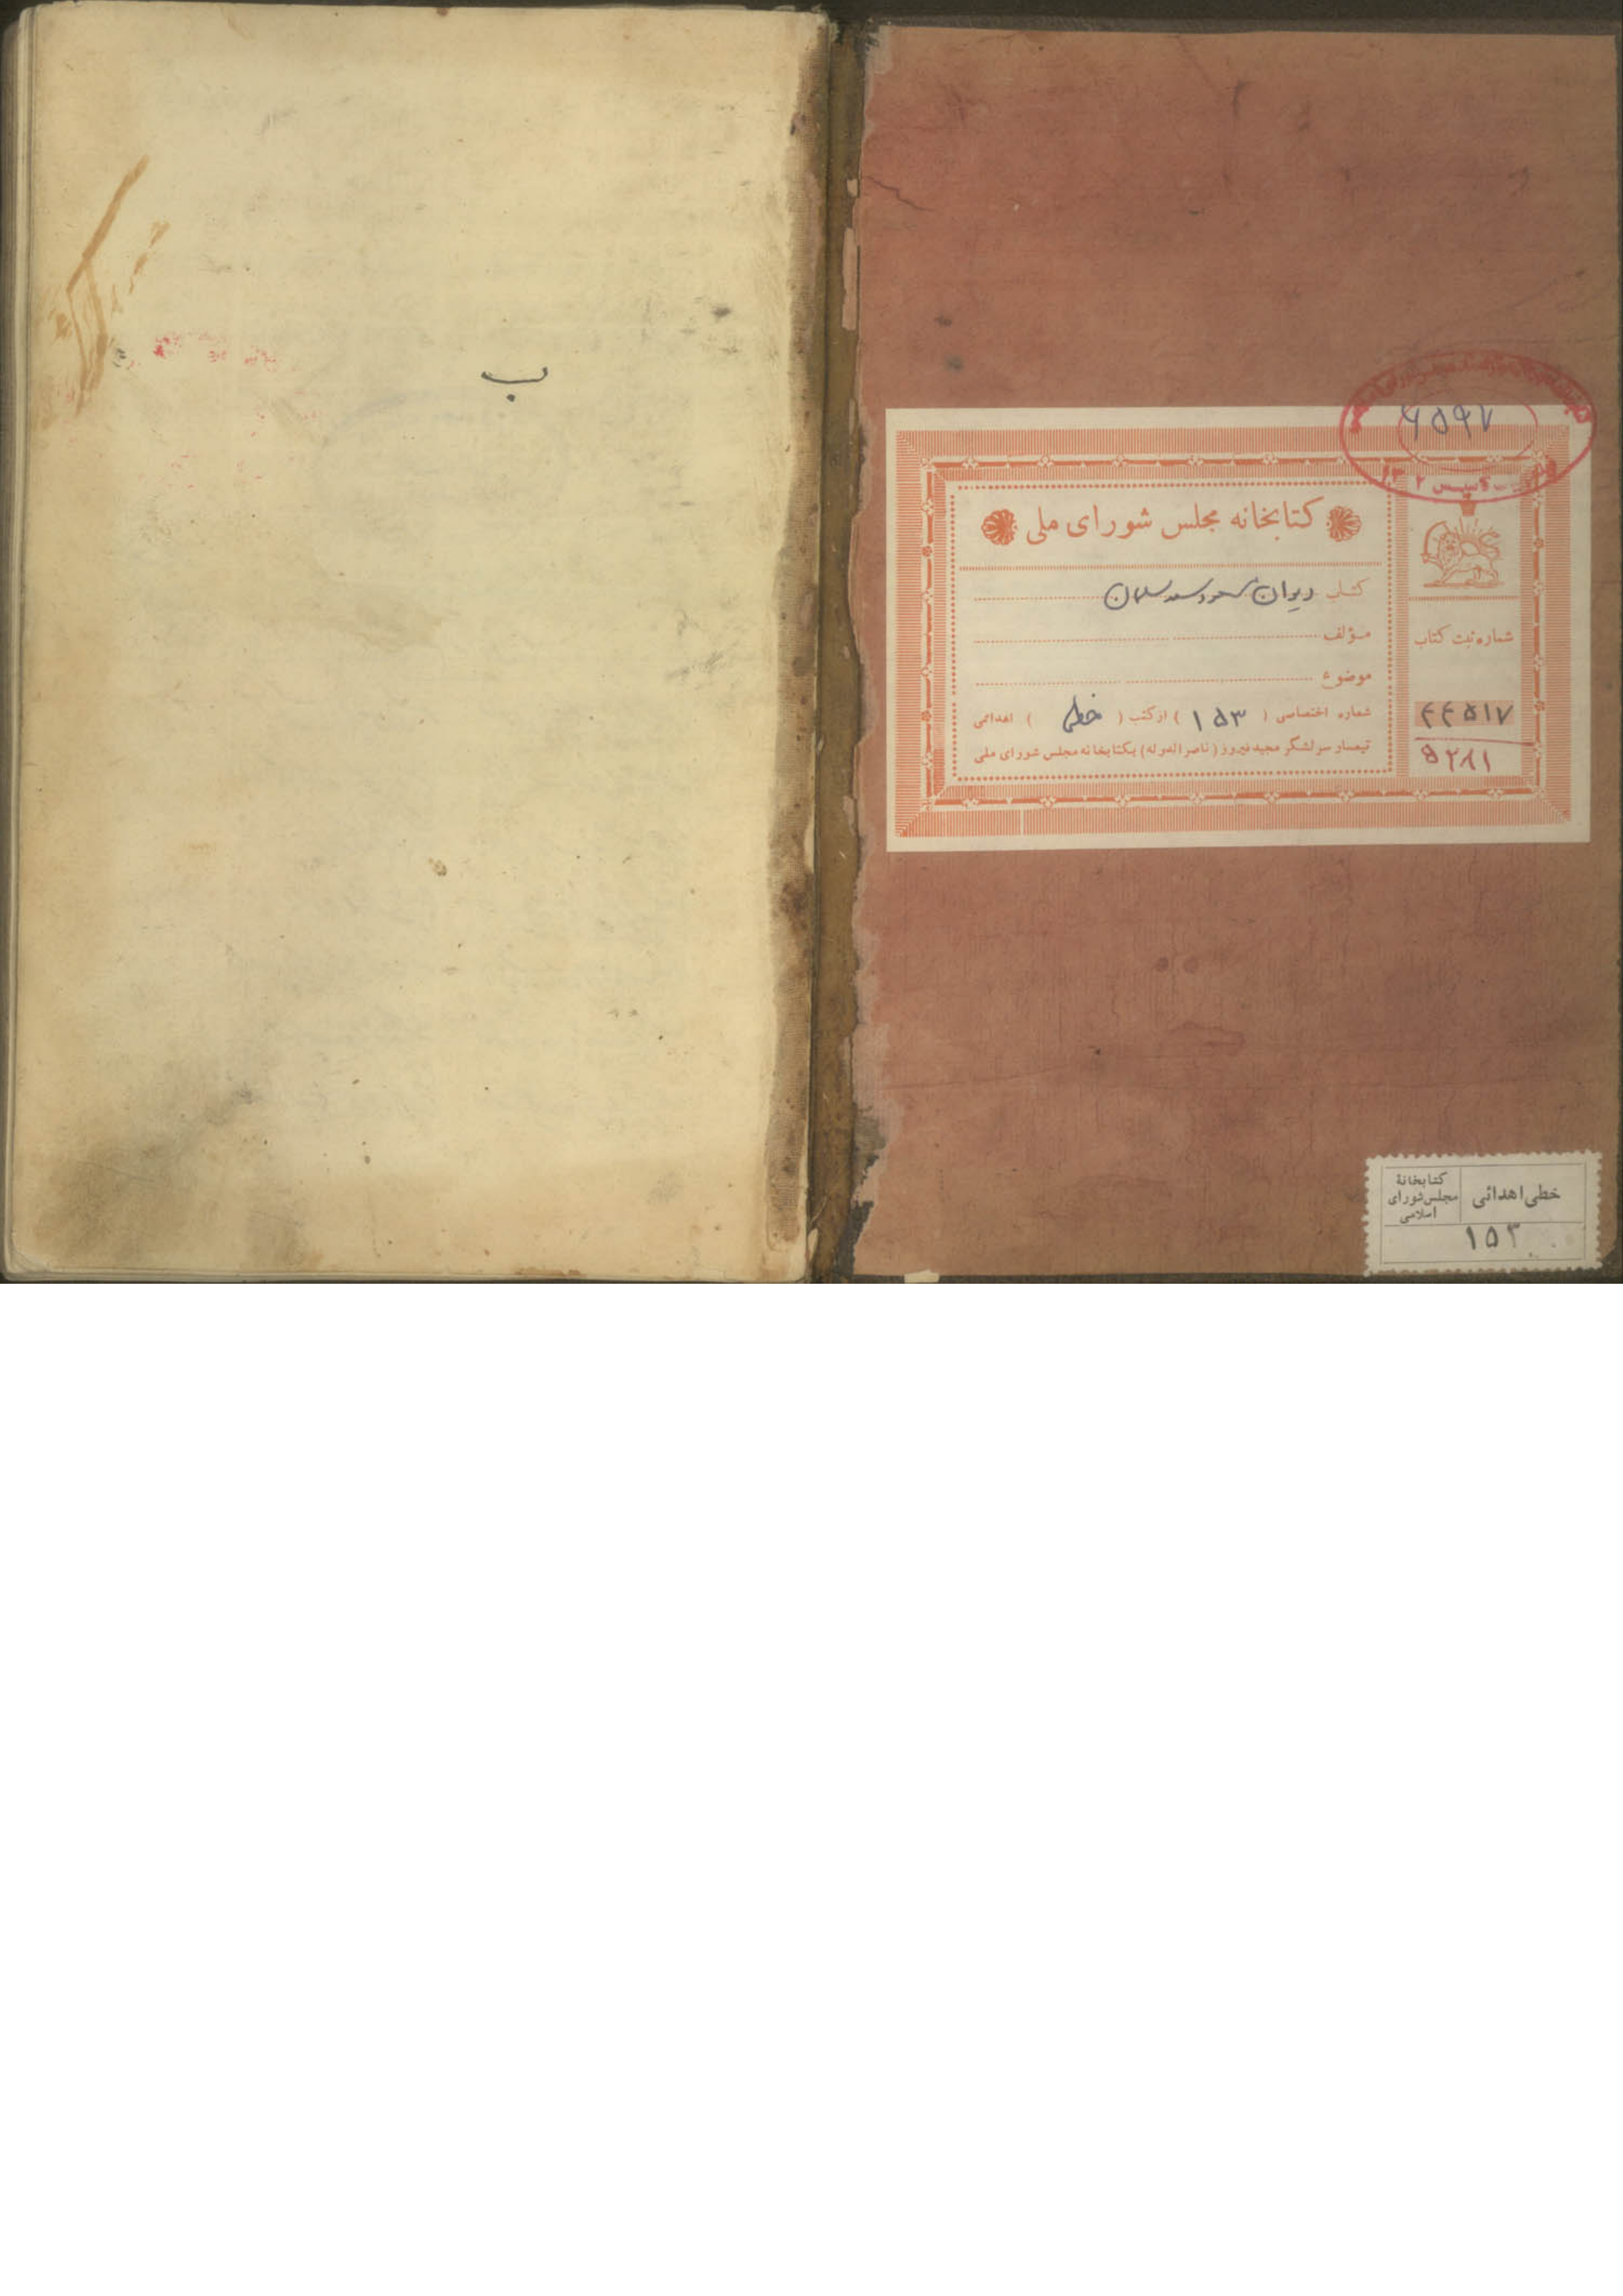 ۶۵۹۷
کتابخانه مجلس شورای ملی
کتاب دیوان مسعود سعد سلمان
مؤلف
موضوع
شماره اختصاصی ( ۱۵۳ ) از کتب ( خطی ) اهدائی
تیمسار سرلشگر مجید فیروز (ناصرالدوله) بکتابخانه مجلس شورای ملی
شماره ثبت کتاب
۴۴۵۱۷
۵۲۸۱
ب
خطی اهدائی
کتابخانهٔ
مجلس شورای
اسلامی
۱۵۳